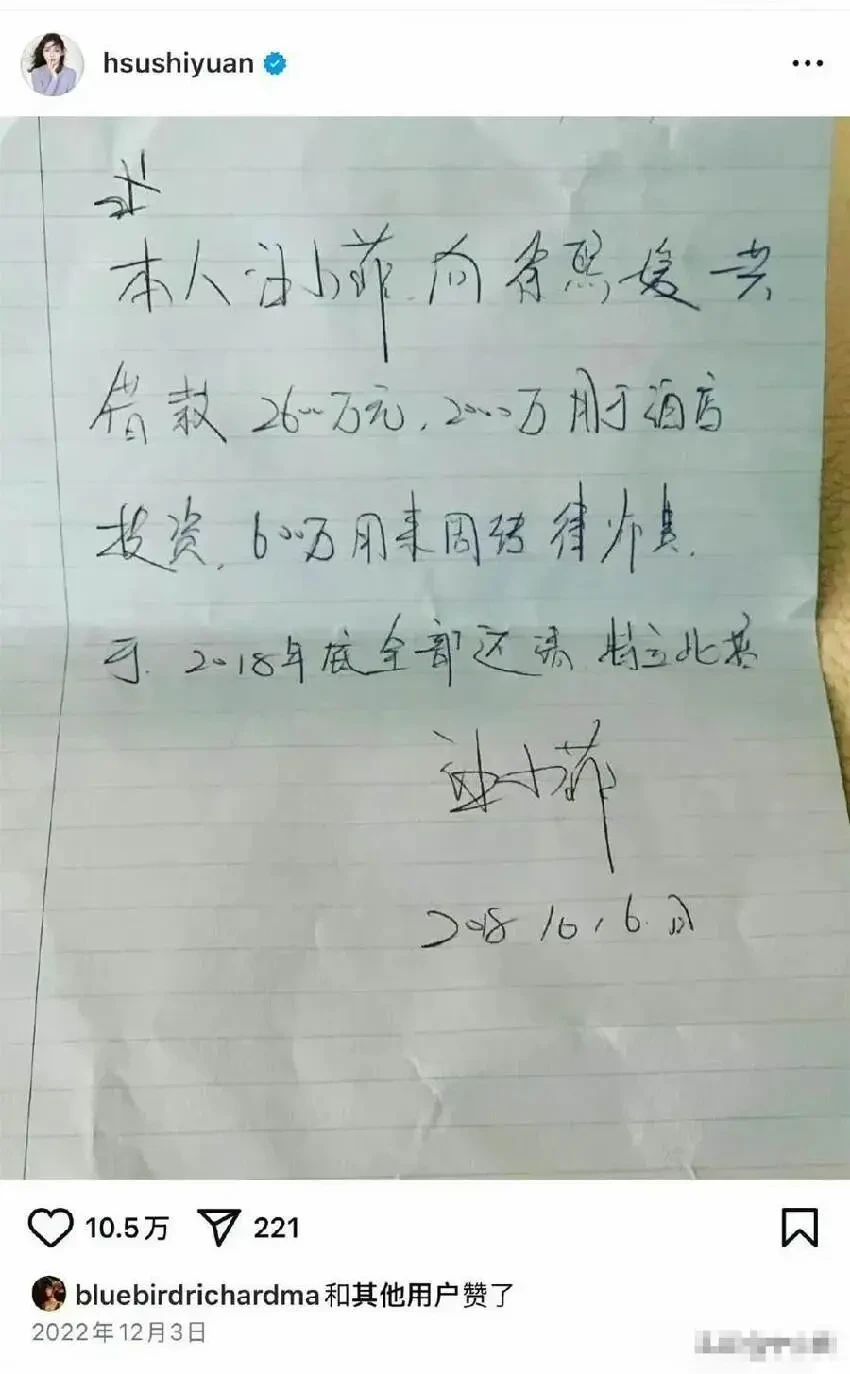 hsushiyuan
本人汪小菲向徐熙媛共
借款2600万元,2000万用于酒店
投资,600万用来周转律师费.
于.2018年底全部还清 特立此契
汪小菲
2018 10,6.日
10.5万 221
bluebirdrichardma和其他用户赞了
2022年12月3日